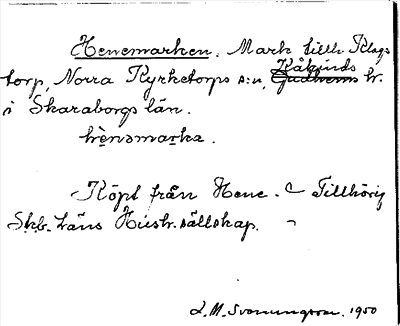 Henemarken. Mark tillh. Klags
torp, Norra Kyrketorps s:n, Kåkinds
Gudhems hr.
i Skaraborgs län.
hènəmarka.
Köpt från Hene. Tillhörig
Skb. Läns Hustr. sällskap.
L. M. Svanungsson. 1950